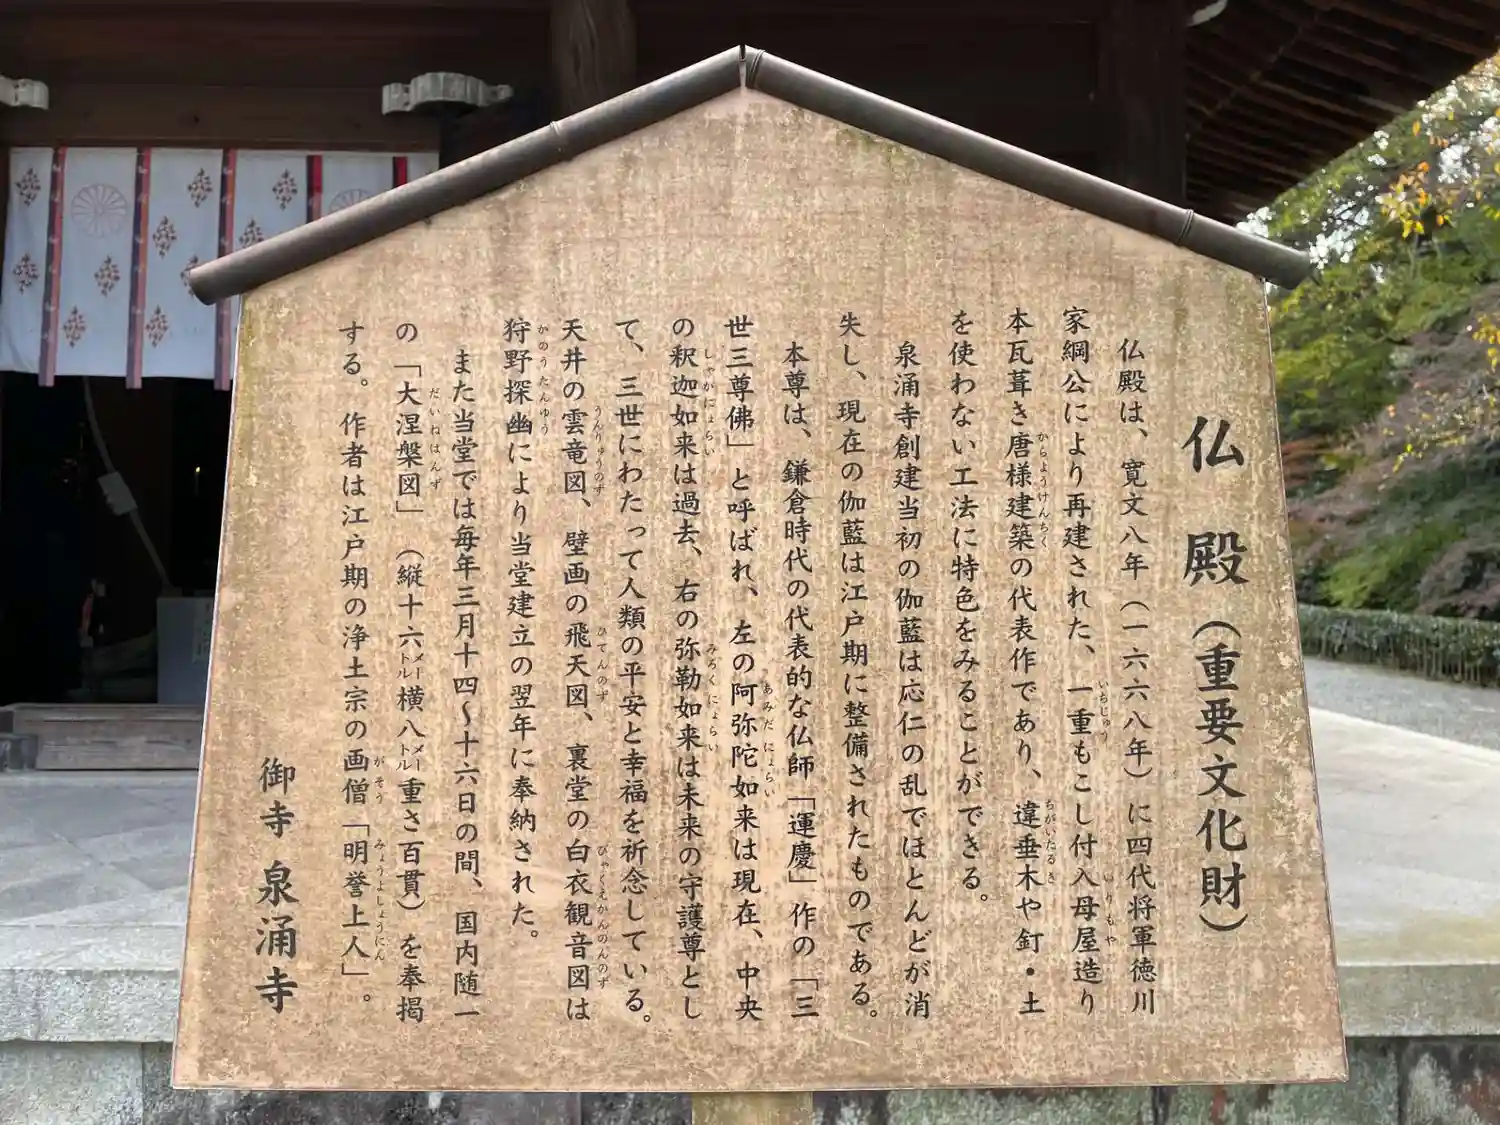 仏殿（重要文化財）
仏殿は、寛文八年（一六六八年）に四代将軍徳川
家綱公により再建された、一重もこし付入母屋造り
本瓦葺き唐様建築の代表作であり、違垂木や釘・土
を使わない工法に特色をみることができる。
泉涌寺創建当初の伽藍は応仁の乱でほとんどが消
失し、現在の伽藍は江戸期に整備されたものである。
本尊は、鎌倉時代の代表的な仏師「運慶」作の「三
世三尊佛」と呼ばれ、左の阿弥陀如来は現在、中央
の釈迦如来は過去、右の弥勒如来は未来の守護尊とし
て、三世にわたって人類の平安と幸福を祈念している。
天井の雲竜図、壁画の飛天図、裏堂の白衣観音図は
狩野探幽により当堂建立の翌年に奉納された。
また当堂では毎年三月十四〜十六日の間、国内随一
の「大涅槃図」（縦十六メートル横八メートル重さ百貫）を奉掲
する。作者は江戸期の浄土宗の画僧「明誉上人」。
御寺 泉涌寺